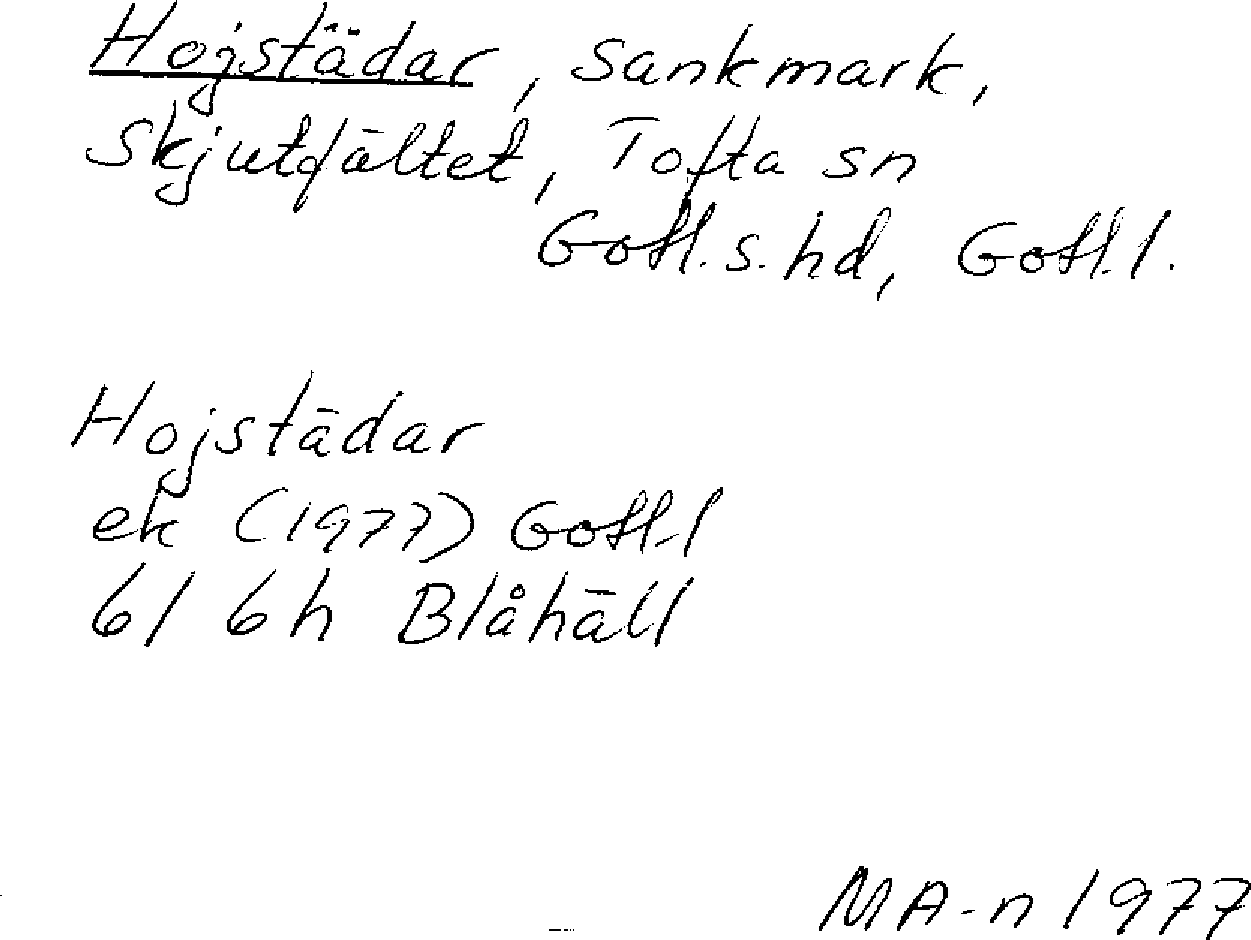 Hojstädar, sankmark,
Skjutfältet, Tofta sn
Gotl. s. hd, Gotl. l.
Hojstädar
ek (1977) Gotl. l
6I 6h Blåhäll
MA-n 1977